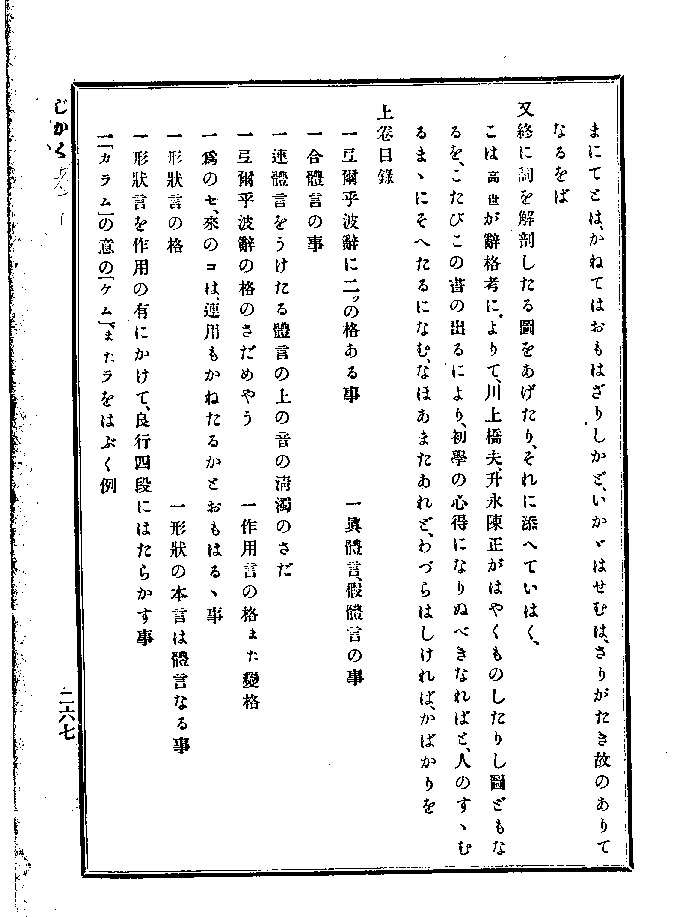 まにてとは、かねてはおもはざりしかど、いかゞはせむは、さりがたき故のありて
なるをば
又終に詞を解剖したる圖をあげたり、それに添へていはく、
こは高世が辭格考に、よりて、川上橋夫、升永陳正がはやくものしたりし圖どもな
るを、こたびこの書の出るにより、初學の心得になりぬべきなればと、人のすゝむ
るまゝにそへたるになむ、なほあまたあれど、わづらはしければ、かばかりを
上卷目錄
一 弖爾乎波辭に二ツの格ある事　一 眞體言、假體言の事
一 合體言の事
一 連體言をうけたる體言の上の音の淸濁のさだ
一 弖爾乎波辭の格のさだめやう　一 作用言の格また變格
一 爲のセ、來のコは、連用もかねたるかとおもはるゝ事
一 形狀言の格　一 形狀の本言は體言なる事
一 形狀言を作用の有にかけて、良行四段にはたらかす事
一 「カラム」の意の「ケム」、またラをはぶく例
じかく
二六七